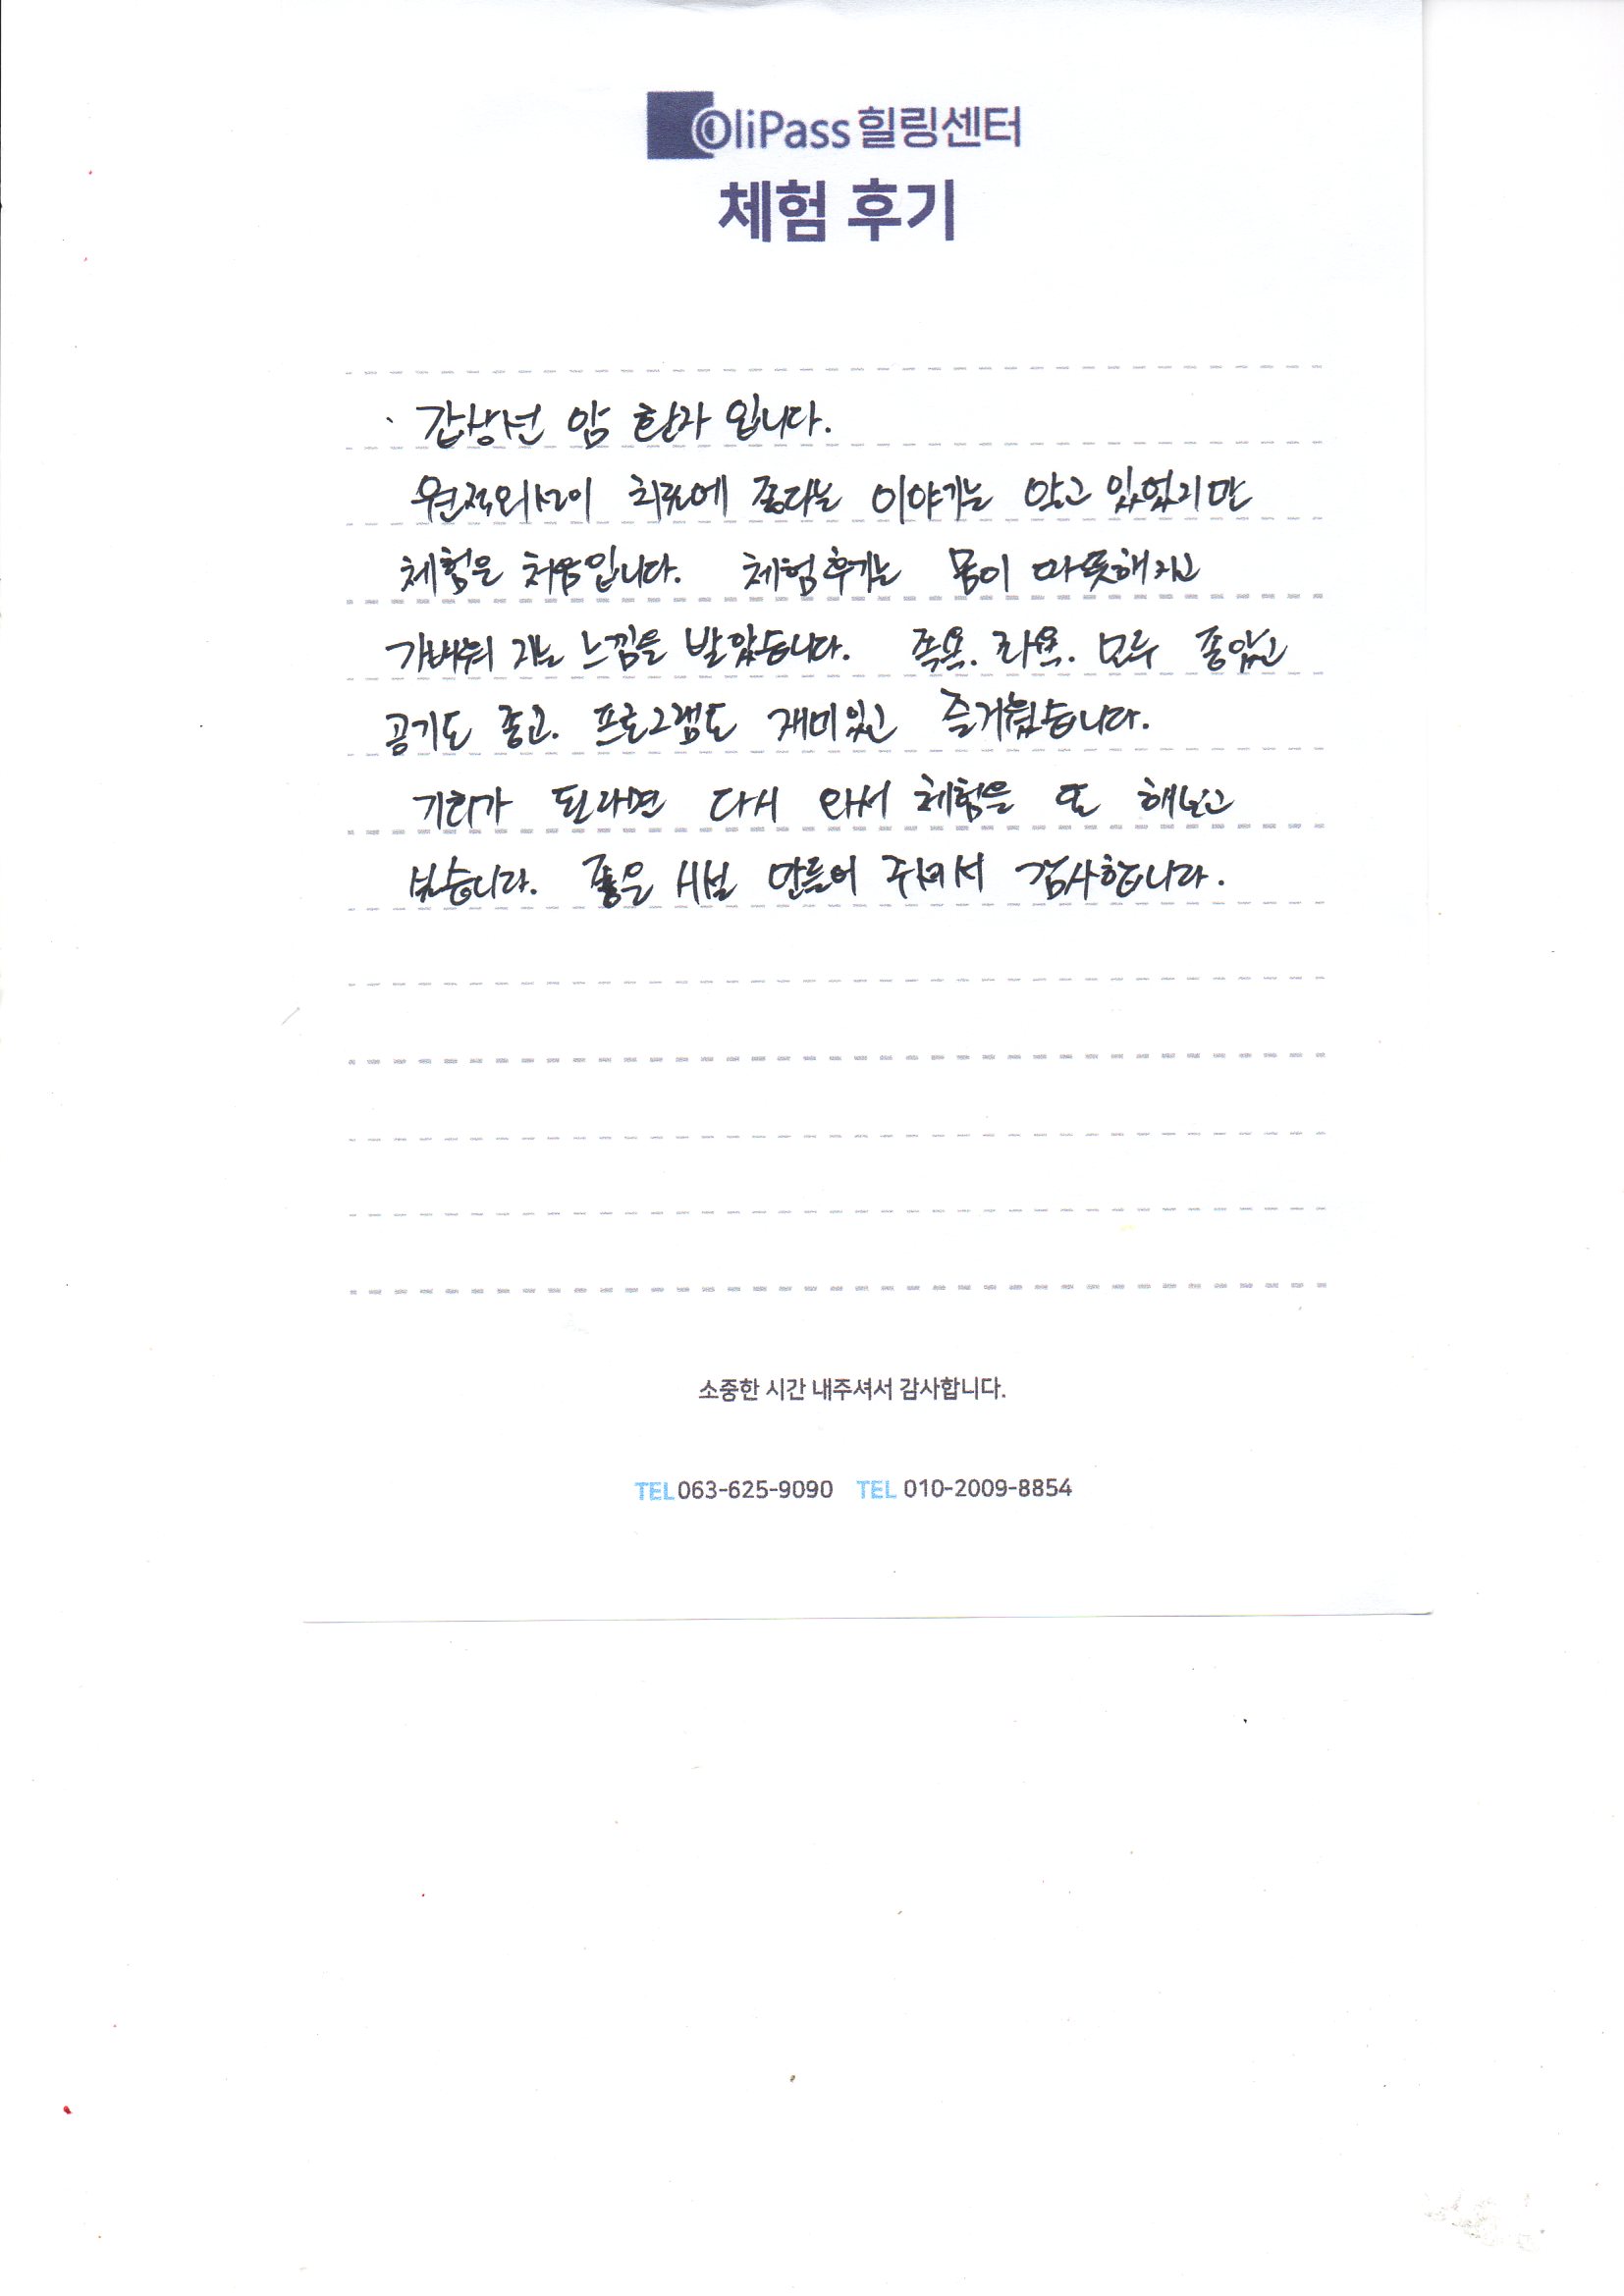 OliPass 힐링센터
체험 후기
· 갑상선 암 환자 입니다.
원적외선이 치료에 좋다는 이야기는 알고 있었지만
체험은 처음입니다. 체험후기는 몸이 따뜻해지고
가벼워 지는 느낌을 받았습니다. 족욕. 좌욕. 모두 좋았고
공기도 좋고. 프로그램도 재미있고 즐거웠습니다.
기회가 된다면 다시 와서 체험을 또 해보고
싶습니다. 좋은 시설 만들어 주셔서 감사합니다.
소중한 시간 내주셔서 감사합니다.
TEL 063-625-9090 TEL 010-2009-8854